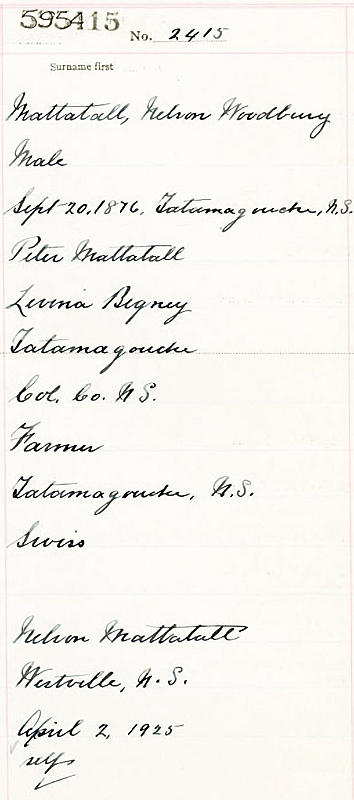 595415
No. 2415
Surname first
Mattatall, Nelson Woodbury
Male
Sept 20, 1876, Tatamagouche, N.S.
Peter Mattatall
Levinia Bigney
Tatamagouche
Col. Co. N S.
Farmer
Tatamagouche, N.S.
Swiss
Nelson Mattatall
Westville, N.S.
April 2, 1925
self